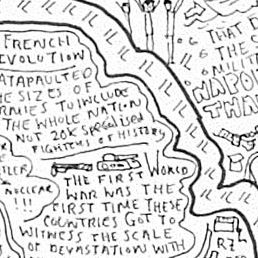 FRENCH
EVOLUTION
ATAPAULTED
HE SIZES OF
RMIES TO INCLUDE
THE WHOLE NATION
NOT 20K SPECIALISED
FIGHTERS OF HISTORY
THE FIRST WORLD
WAR WAS THE
FIRST TIME THESE
COUNTRIES GOT TO
WITNESS THE SCALE
OF DEVASTATION WITH
NUCLEAR
!!!
THAT
THE S
MILIT
NAPO
THA
RZ